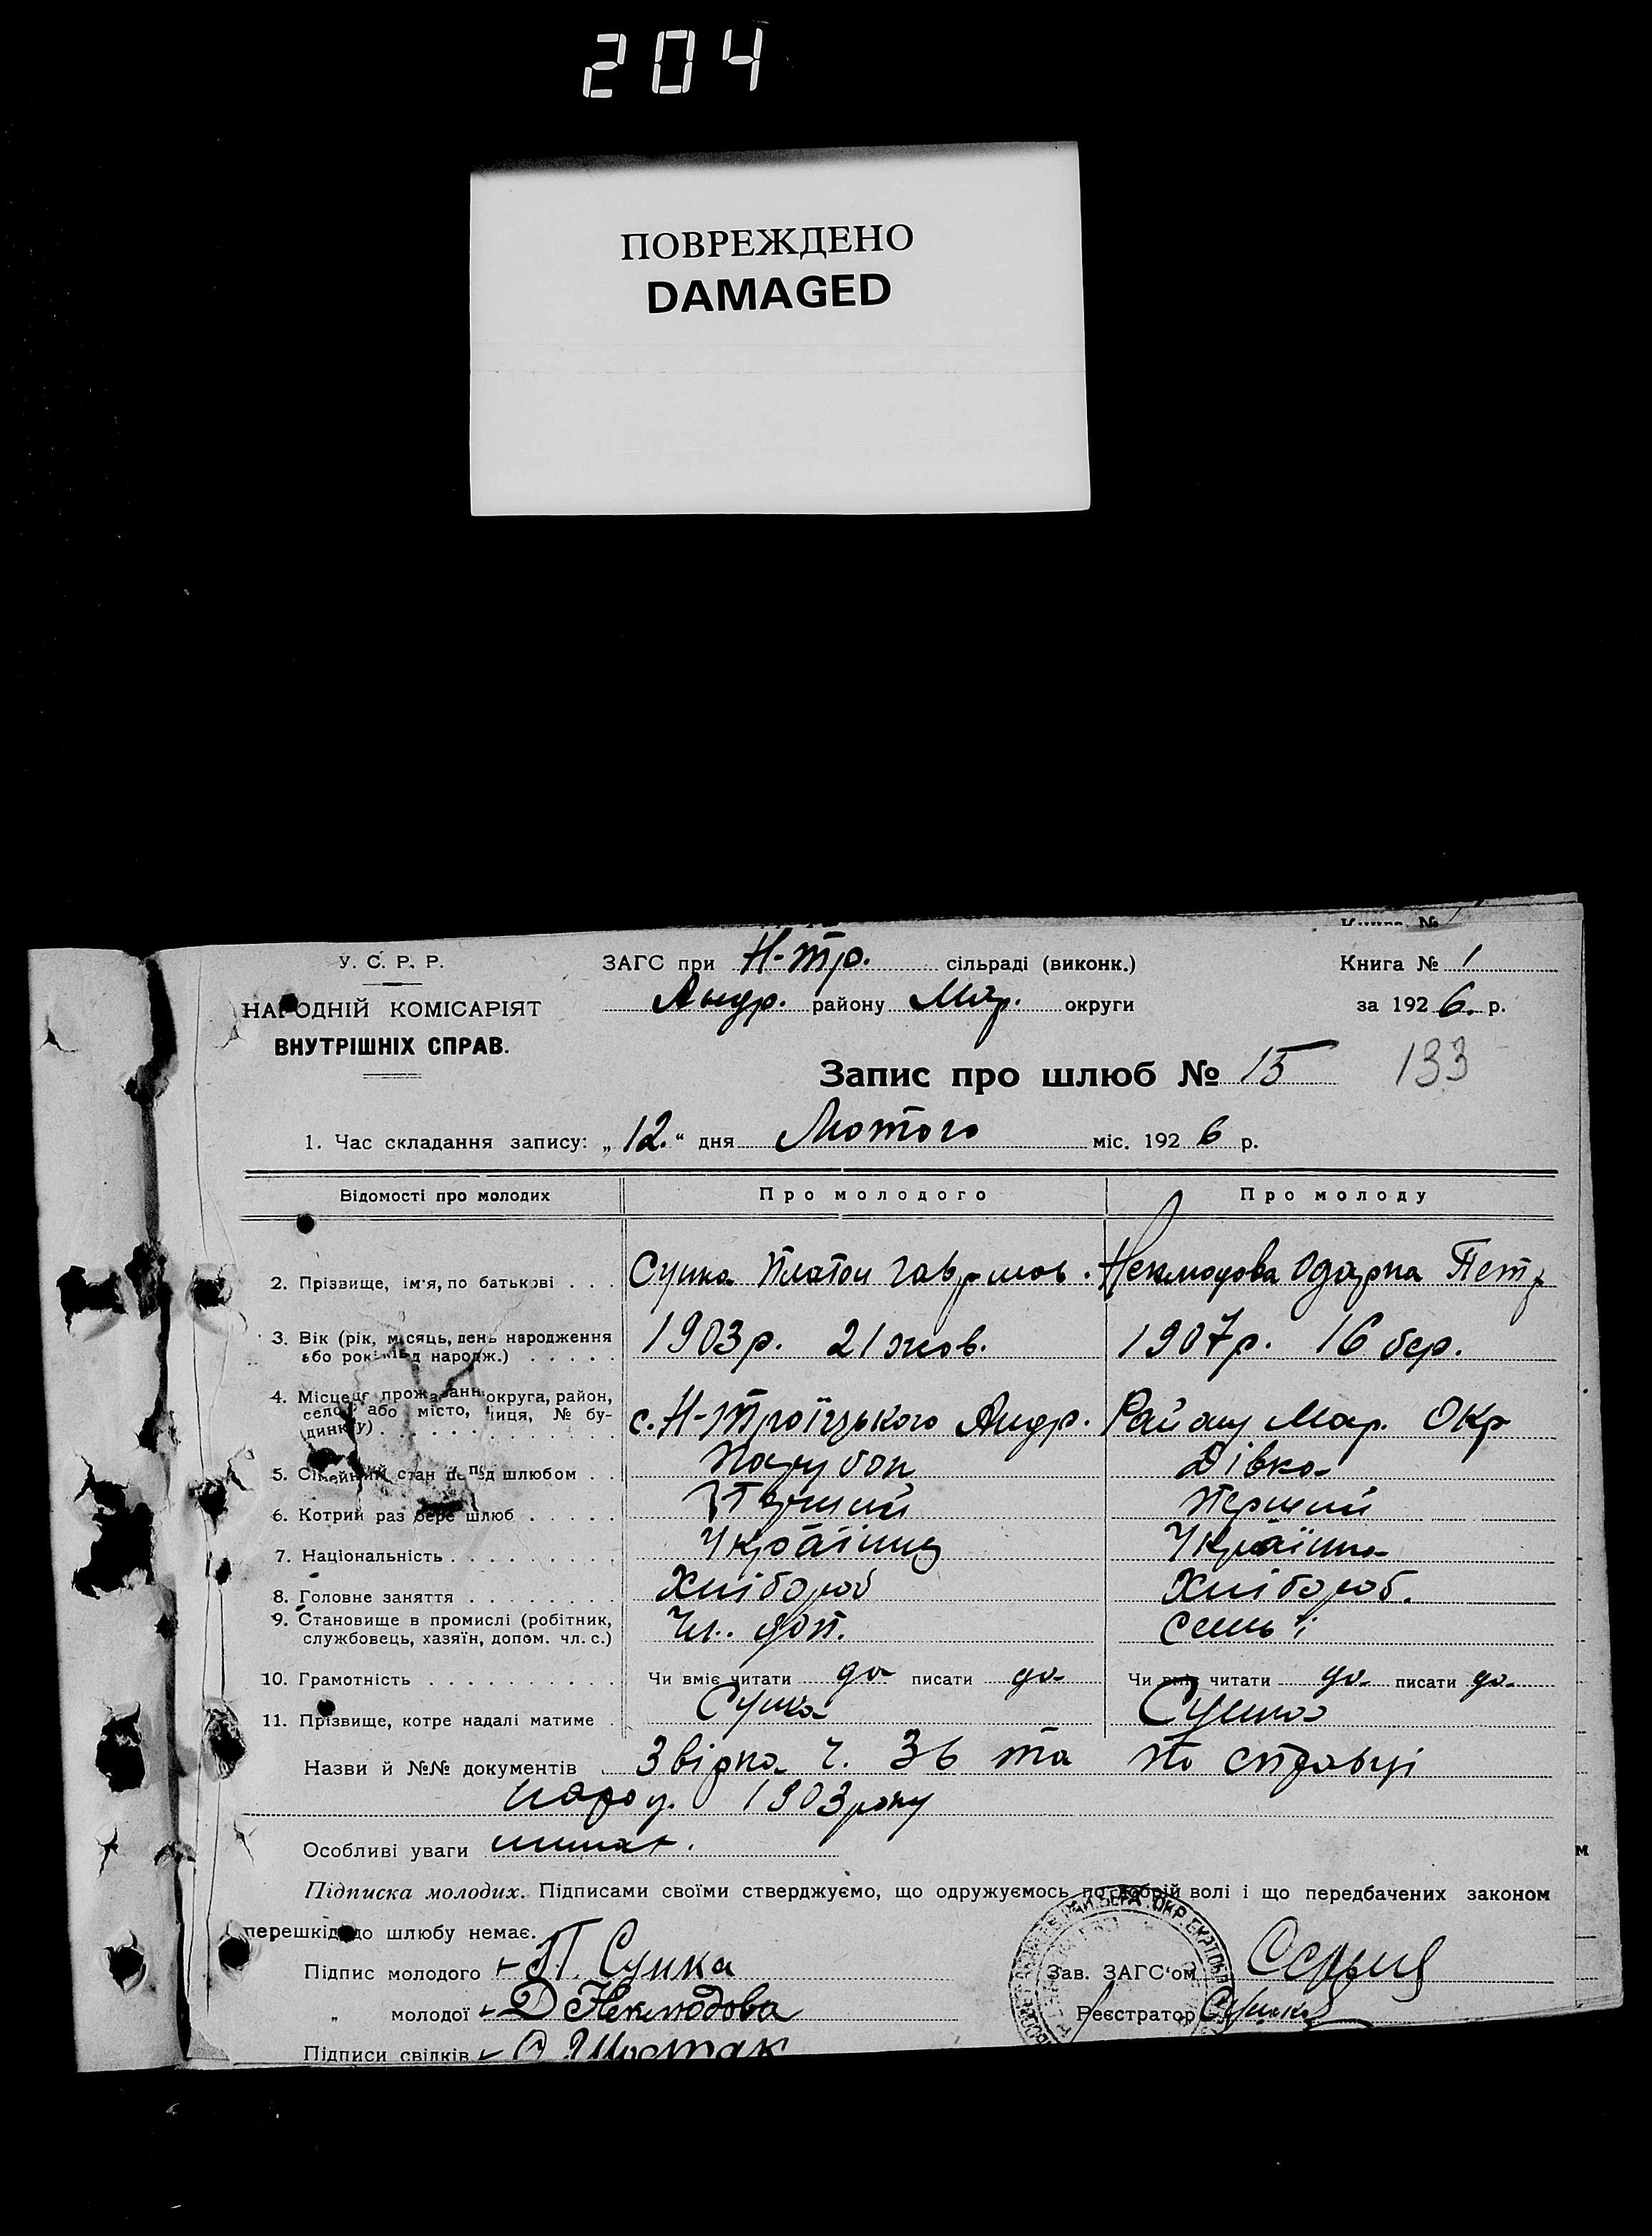 204
ПОВРЕЖДЕНО
DAMAGED
Книга №
У. С. Р. Р.
ЗАГС при Н-Тр. сільраді (виконк.)
Книга № 1
НАРОДНІЙ КОМІСАРІЯТ
Андр. району Мар. округи
за 1926. р.
ВНУТРІШНІХ СПРАВ.
Запис про шлюб № 15 133
1. Час складання запису: „12.“ дня Лютого міс. 1926 р.
Відомості про молодих Про молодого Про молоду
2. Прізвище, ім'я, по батькові . . . Сушка Платон Гаврилов. Неклюдова Одарка Петр
3. Вік (рік, місяць, день народження
або років від народж.) . . . . . 1903р. 21 жов. 1907р. 16 бер.
4. Місце прожжання округа, район,
село або місто, № бу-
динку) . . . . . . . . . . . . . с. Н-Троїцького Андр. Району Мар. Окр
5. Сімейний стан перед шлюбом . . Парубок Дівка
6. Котрий раз бере шлюб . . . . . Перший Перший
7. Національність . . . . . . . . . Українец Українка
8. Головне заняття . . . . . . . . Хлібороб Хлібороб.
9. Становище в промислі (робітник,
службовець, хазяїн, допом. чл. с.) Чл. доп. семьї
10. Грамотність . . . . . . . . . . Чи вміє читати да писати да Чи вміє читати да писати да
11. Прізвище, котре надалі матиме . Сушка Сушка
Назви й №№ документів . Звірка ч. 36 та по справці
народ. 1903 року
Особливі уваги нимає.
Підписка молодих. Підписами своїми стверджуємо, що одружуємось по добрій волі і що передбачених законом
перешкід до шлюбу немає.
Підпис молодого П. Сушка
Зав. ЗАГС'ом
„ молодої Д Неклюдова
Реєстратор
Підписи свідків Шостак